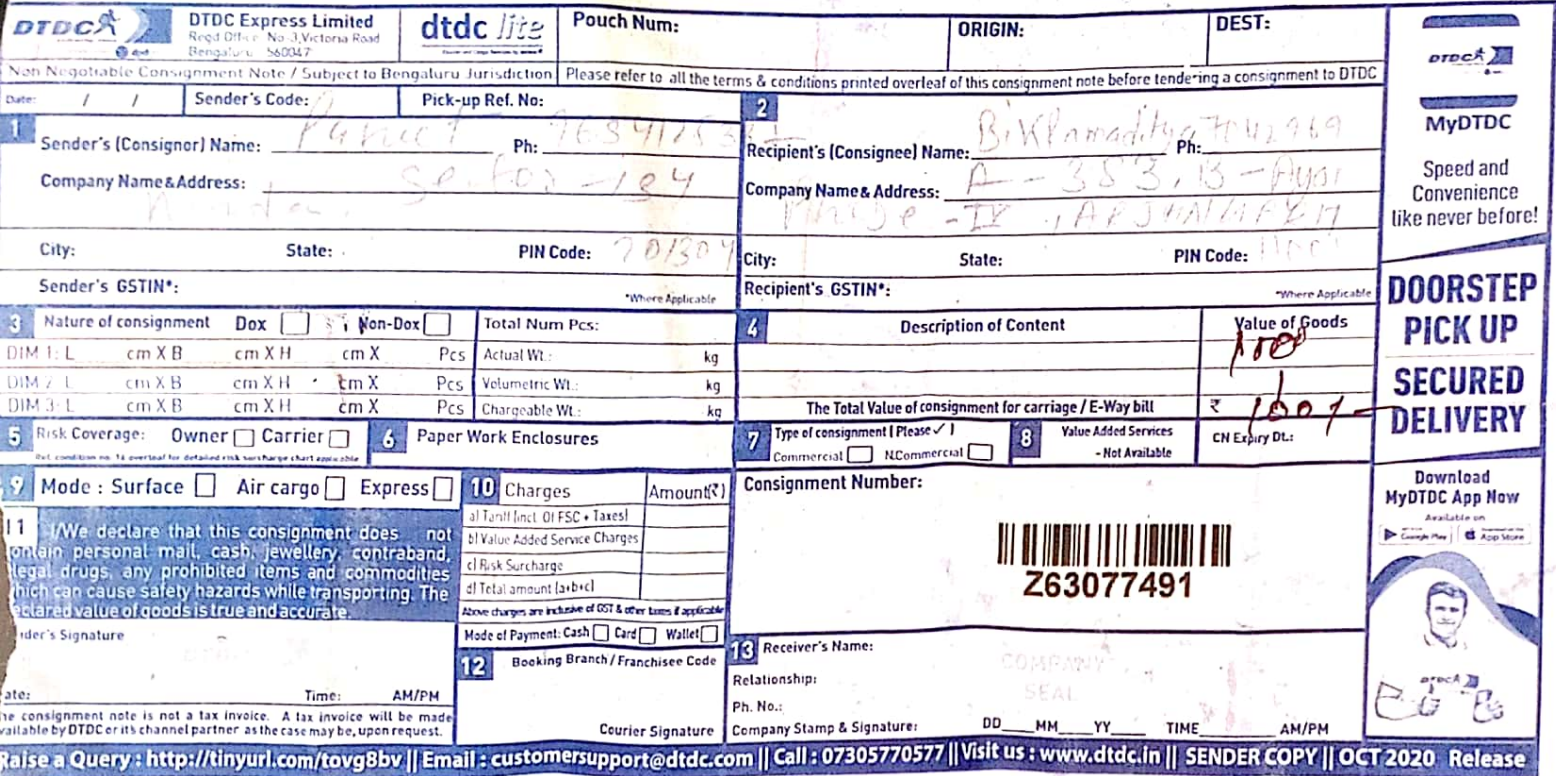 DTDC
DTDC Express Limited
Regd Office No-3,Victoria Road
Bengaluru 560047
dtdc lite
Pouch Num:
ORIGIN:
DEST:
Non Negotiable Consignment Note / Subject to Bengaluru Jurisdiction
Please refer to all the terms & conditions printed overleaf of this consignment note before tendering a consignment to DTDC
Date: / /
Sender's Code:
Pick-up Ref. No:
1
Sender's (Consignor) Name:
Ph:
Company Name & Address:
City: State: PIN Code: 201304
Sender's GSTIN*:
*Where Applicable
2
Recipient's (Consignee) Name: Ph:
Company Name & Address: A-353, B-
City: State: PIN Code:
Recipient's GSTIN*:
*Where Applicable
3 Nature of consignment Dox Non-Dox
DIM 1: L cm X B cm X H cm X Pcs
DIM 2: L cm X B cm X H cm X Pcs
DIM 3: L cm X B cm X H cm X Pcs
Total Num Pcs:
Actual Wt.: kg
Volumetric Wt.: kg
Chargeable Wt.: kg
4 Description of Content
Value of Goods
The Total Value of consignment for carriage / E-Way bill ₹
5 Risk Coverage: Owner Carrier
Ref. condition no. 14 overleaf for detailed risk surcharge chart applicable
6 Paper Work Enclosures
7 Type of consignment ( Please ✓ )
Commercial N.Commercial
8 Value Added Services
- Not Available
CN Expiry Dt.:
9 Mode : Surface Air cargo Express
10 Charges Amount(₹)
a) Tariff (incl. Of FSC + Taxes)
b) Value Added Service Charges
c) Risk Surcharge
d) Total amount (a+b+c)
Above charges are inclusive of GST & other taxes if applicable
Mode of Payment: Cash Card Wallet
11 I/We declare that this consignment does not
ontain personal mail, cash, jewellery, contraband,
legal drugs, any prohibited items and commodities
hich can cause safety hazards while transporting. The
eclared value of goods is true and accurate.
der's Signature
ate: Time: AM/PM
he consignment note is not a tax invoice. A tax invoice will be made
vailable by DTDC or it's channel partner as the case may be, upon request.
12 Booking Branch / Franchisee Code
Courier Signature
Consignment Number:
Z63077491
13 Receiver's Name:
Relationship:
Ph. No.:
Company Stamp & Signature: DD MM YY TIME AM/PM
COMPANY
SEAL
DTDC
MyDTDC
Speed and
Convenience
like never before!
DOORSTEP
PICK UP
SECURED
DELIVERY
Download
MyDTDC App Now
Available on
Google Play
App Store
DTDC
Raise a Query : http://tinyurl.com/tovg8bv || Email : customersupport@dtdc.com || Call : 07305770577 || Visit us : www.dtdc.in || SENDER COPY || OCT 2020 Release